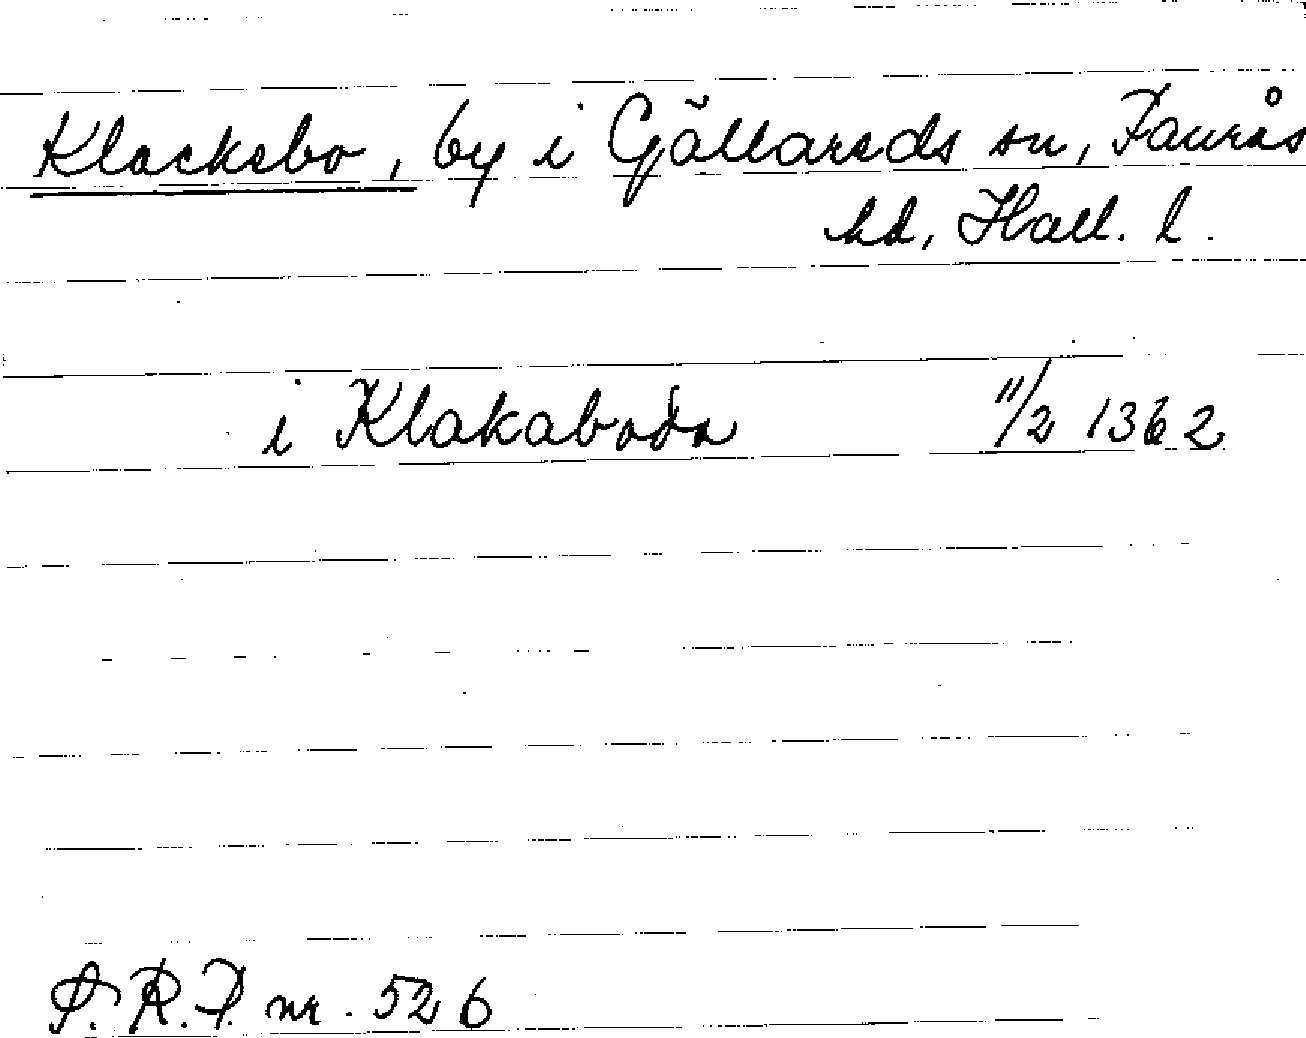 Klacksbo, by i Gällareds sn, Faurås
hd, Hall. l.
i Klakaboda 11/2 1362
S.R.P. nr. 526